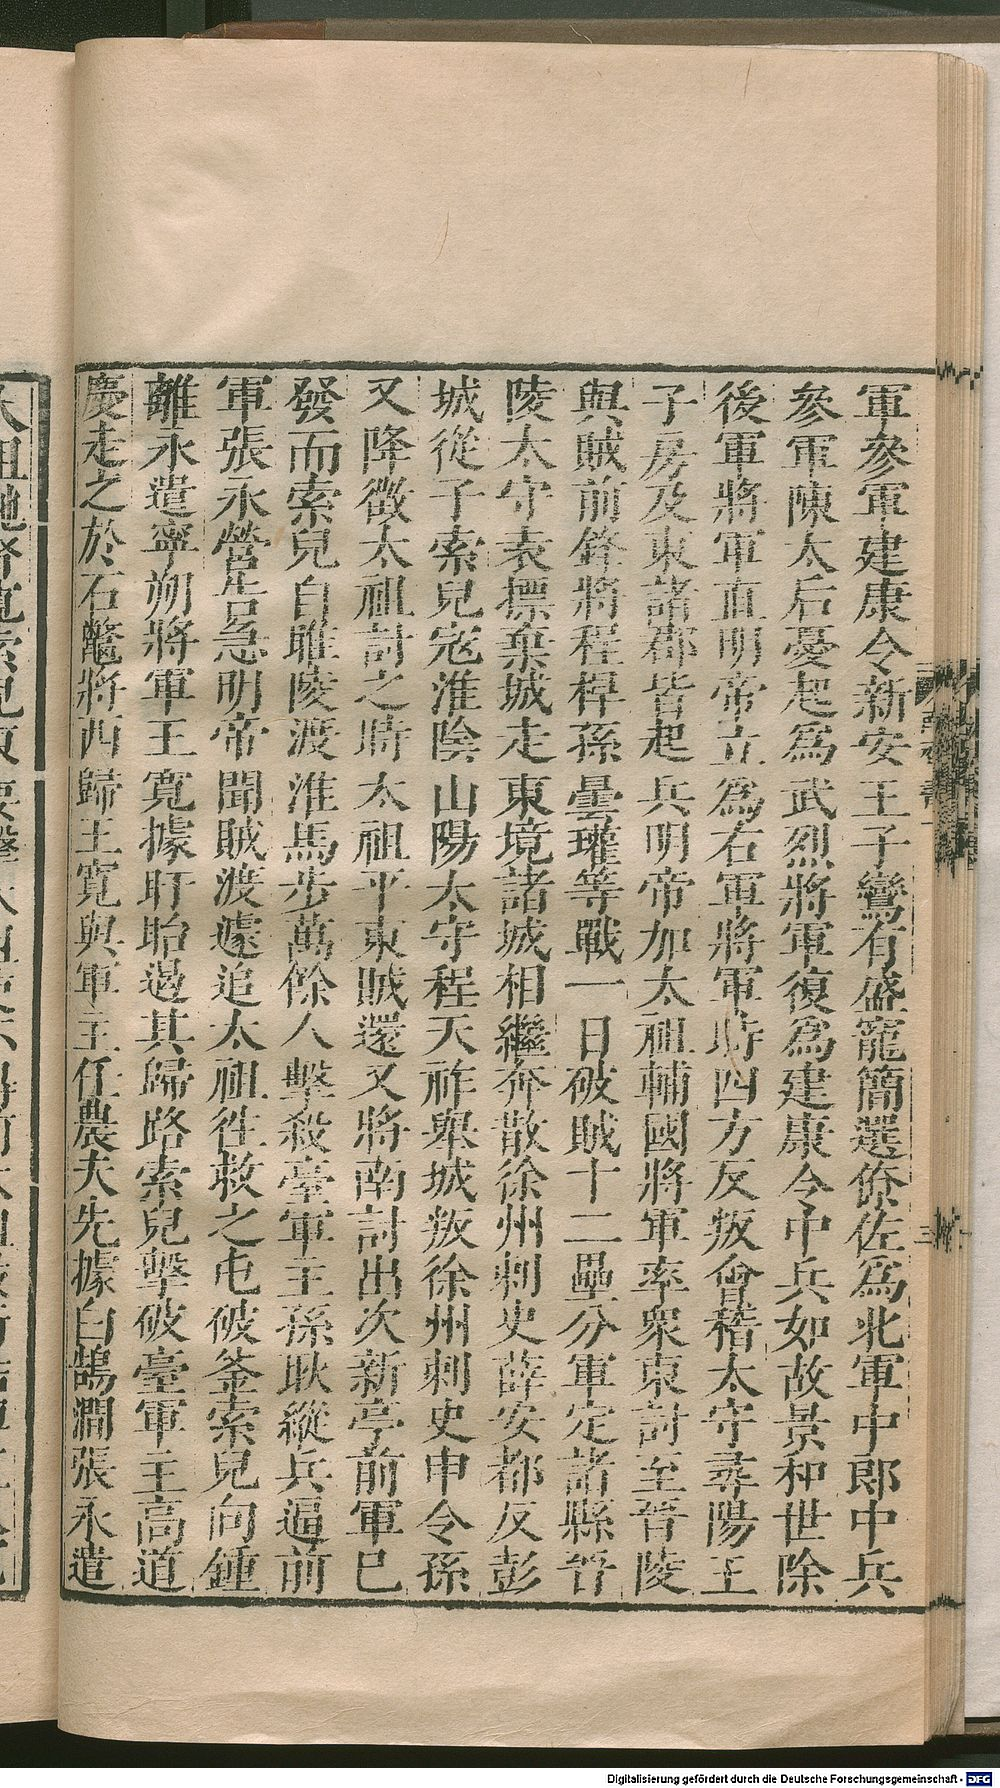 軍參軍建康令新安王子鸞有盛寵簡選僚佐為北軍中郎中兵
參軍陳太后憂起為武烈將軍復為建康令中兵如故景和世除
後軍將軍直明帝立為右軍將軍時四方反叛會稽太守尋陽王
子房及東諸郡皆起兵明帝加太祖輔國將軍率衆東討至晉陵
與賊前鋒將程捍孫曇瓘等戰一日破賊十二壘分軍定諸縣晉
陵太守袁摽棄城走東境諸城相繼奔散徐州刺史薛安都反彭
城從子索兒宼淮陰山陽太守程天祚舉城叛徐州刺史申令孫
又降徵太祖討之時太祖平東賊還又將南討出次新亭前軍已
發而索兒自睢陵渡淮馬步萬餘人擊殺臺軍主孫耿縱兵逼前
軍張永營告急明帝聞賊渡遽追太祖徃救之屯破釜索兒向鍾
離永遣寧朔將軍王寬據盱眙遏其歸路索兒擊破臺軍主高道
慶走之於石鼈將西歸王寬與軍主任農夫先據白鵠澗張永遣
Digitalisierung gefördert durch die Deutsche Forschungsgemeinschaft - DFG